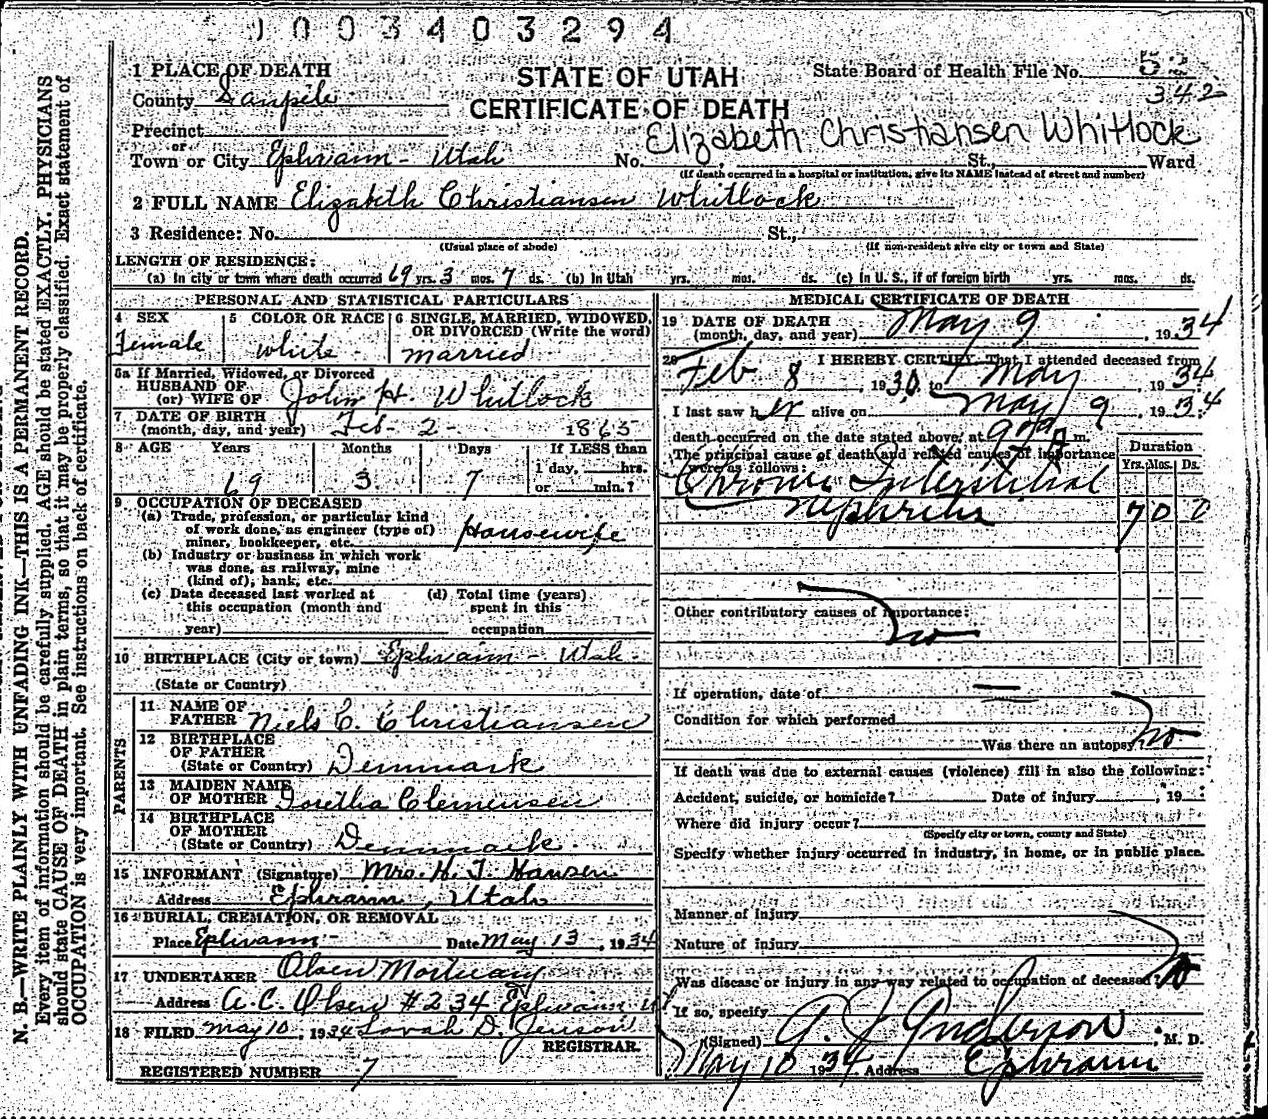 1003403294
1 PLACE OF DEATH
STATE OF UTAH
State Board of Health File No. 52
County Sanpete
CERTIFICATE OF DEATH
342
Precinct
Elizabeth Christiansen Whitlock
or
Town or City Ephraim - Utah No. St., Ward
(If death occurred in a hospital or institution, give its NAME instead of street and number)
2 FULL NAME Elizabeth Christiansen Whitlock
3 Residence: No. St.,
(Usual place of abode) (If non-resident give city or town and State)
LENGTH OF RESIDENCE:
(a) In city or town where death occurred 69 yrs. 3 mos. 7 ds. (b) In Utah yrs. mos. ds. (c) In U. S., if of foreign birth yrs. mos. ds.
PERSONAL AND STATISTICAL PARTICULARS
4 SEX Female
5 COLOR OR RACE white
6 SINGLE, MARRIED, WIDOWED, OR DIVORCED (Write the word)
married
6a If Married, Widowed, or Divorced
HUSBAND OF
(or) WIFE OF John H. Whitlock
7 DATE OF BIRTH
(month, day, and year) Feb - 2 - 1865
8 AGE Years Months Days If LESS than
1 day, hrs.
69 3 7 or min.?
9 OCCUPATION OF DECEASED
(a) Trade, profession, or particular kind
of work done, as engineer (type of)
miner, bookkeeper, etc. Housewife
(b) Industry or business in which work
was done, as railway, mine
(kind of), bank, etc.
(c) Date deceased last worked at
this occupation (month and
year)
(d) Total time (years)
spent in this
occupation
10 BIRTHPLACE (City or town) Ephraim - Utah -
(State or Country)
PARENTS
11 NAME OF
FATHER Niels C. Christiansen
12 BIRTHPLACE
OF FATHER
(State or Country) Denmark
13 MAIDEN NAME
OF MOTHER Doretha Clemensen
14 BIRTHPLACE
OF MOTHER
(State or Country) Denmark.
15 INFORMANT (Signature) Mrs. H. T. Hansen
Address Ephraim, Utah
16 BURIAL, CREMATION, OR REMOVAL
Place Ephraim - Date May 13, 1934
17 UNDERTAKER Olsen Mortuary
Address A. C. Olsen #234 Ephraim
18 FILED May 10, 1934 Lovah D. Jensen
REGISTRAR.
REGISTERED NUMBER 7
MEDICAL CERTIFICATE OF DEATH
19 DATE OF DEATH
(month, day, and year) May 9, 1934
20 I HEREBY CERTIFY, That I attended deceased from
Feb 8, 1930, to May, 1934
I last saw her alive on May 9, 1934
death occurred on the date stated above, at A m.
The principal cause of death and related causes of importance
were as follows:
Duration
Yrs. Mos. Ds.
Chronic Interstitial
Nephritis 7 0 0
Other contributory causes of importance:
no
If operation, date of —
Condition for which performed
Was there an autopsy? no
If death was due to external causes (violence) fill in also the following:
Accident, suicide, or homicide? Date of injury, 19
Where did injury occur?
(Specify city or town, county and State)
Specify whether injury occurred in industry, in home, or in public place.
Manner of injury
Nature of injury
Was disease or injury in any way related to occupation of deceased? no
If so, specify
(Signed) A. J. Anderson, M. D.
May 10 1934 Address Ephraim
N. B.—WRITE PLAINLY WITH UNFADING INK—THIS IS A PERMANENT RECORD.
Every item of information should be carefully supplied. AGE should be stated EXACTLY. PHYSICIANS
should state CAUSE OF DEATH in plain terms, so that it may be properly classified. Exact statement of
OCCUPATION is very important. See instructions on back of certificate.